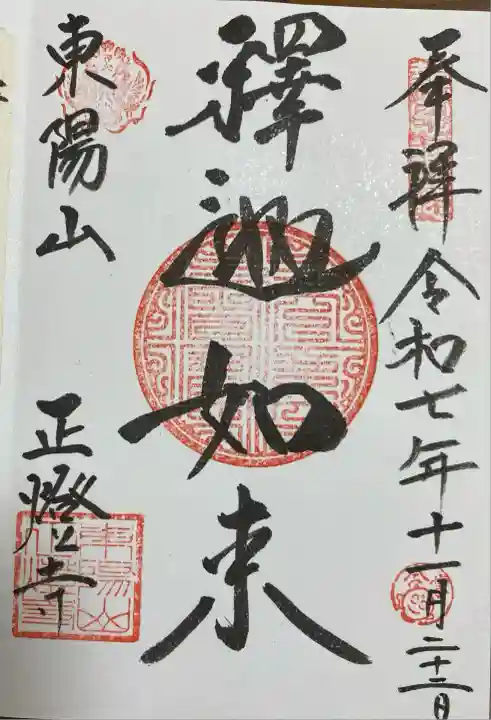 奉拝 令和七年十一月二十二日
釋迦如来
東陽山 正燈寺